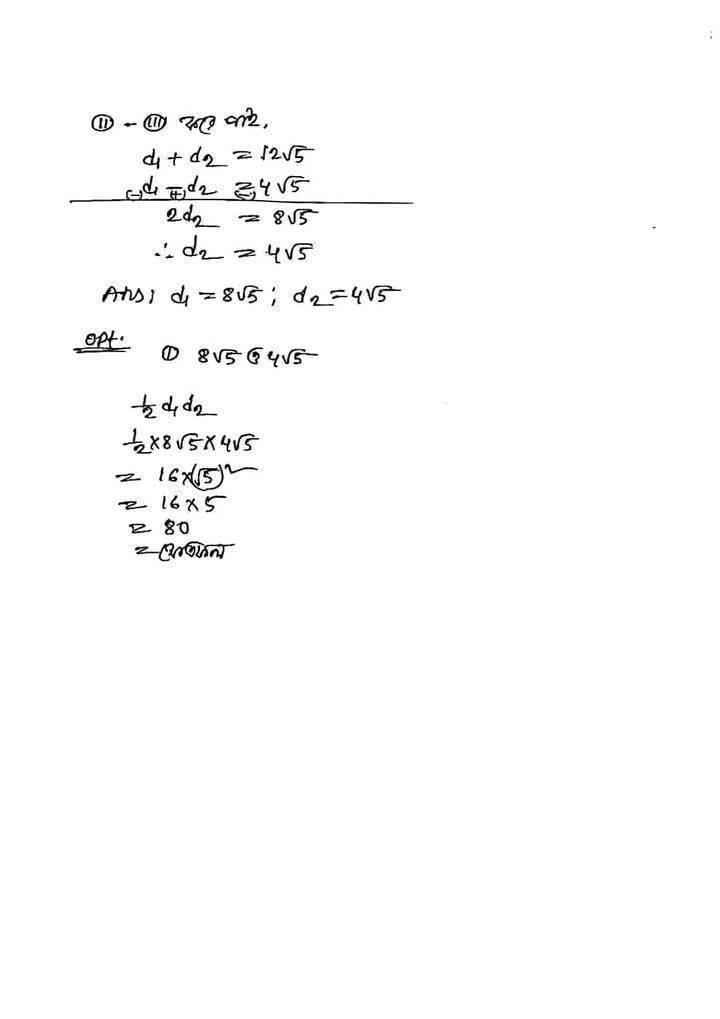 (ii) - (iii) করে পাই,
d₁ + d₂ = 12√5
(-)d₁ -(+) d₂ =(-) 4√5
2d₂ = 8√5
∴ d₂ = 4√5
Ans: d₁ = 8√5 ; d₂ = 4√5
Opt.
(i) 8√5 ও 4√5
½ d₁d₂
½×8√5×4√5
= 16×(√5)²
= 16×5
= 80
= ক্ষেত্রফল